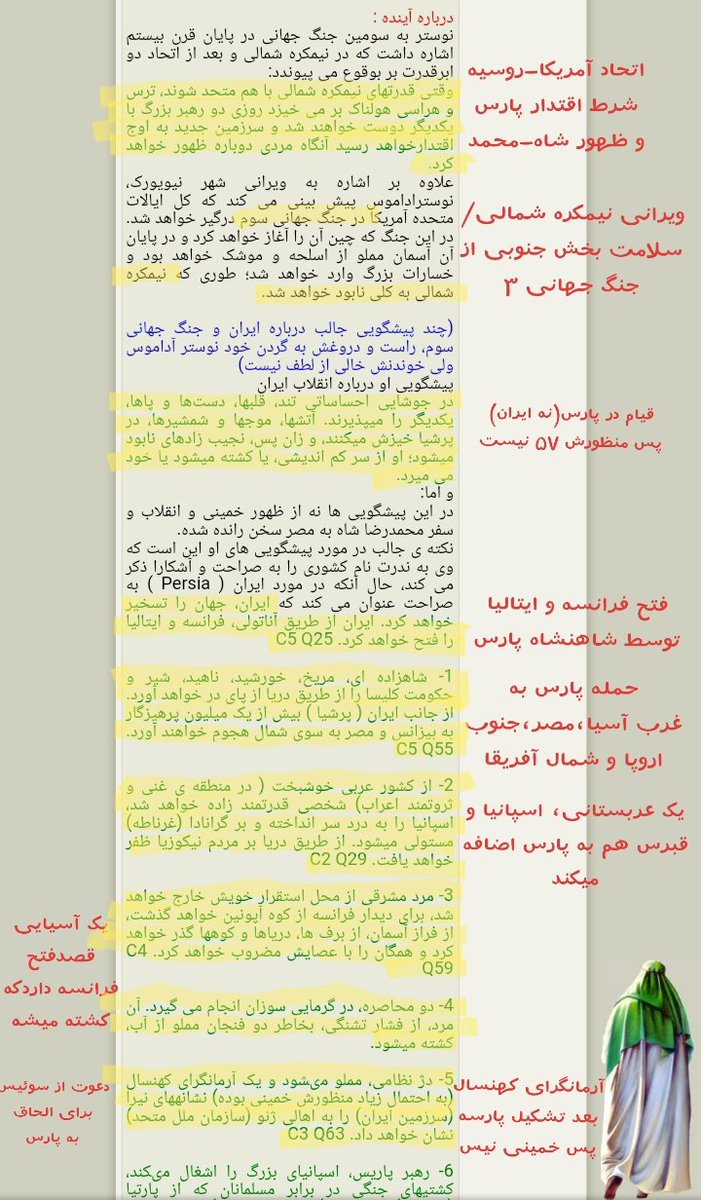 درباره آینده :
نوستر به سومین جنگ جهانی در پایان قرن بیستم
اشاره داشت که در نیمکره شمالی و بعد از اتحاد دو
ابرقدرت بر بوقوع می پیوندد:
وقتی قدرتهای نیمکره شمالی با هم متحد شوند، ترس
و هراسی هولناک بر می خیزد روزی دو رهبر بزرگ با
یکدیگر دوست خواهند شد و سرزمین جدید به اوج
اقتدارخواهد رسید آنگاه مردی دوباره ظهور خواهد
کرد.
اتحاد آمریکا-روسیه
شرط اقتدار پارس
و ظهور شاه-محمد
علاوه بر اشاره به ویرانی شهر نیویورک،
نوستراداموس پیش بینی می کند که کل ایالات
متحده آمریکا در جنگ جهانی سوم درگیر خواهد شد.
در این جنگ که چین آن را آغاز خواهد کرد و در پایان
آن آسمان مملو از اسلحه و موشک خواهد بود و
خسارات بزرگ وارد خواهد شد؛ طوری که نیمکره
شمالی به کلی نابود خواهد شد.
ویرانی نیمکره شمالی/
سلامت بخش جنوبی از
جنگ جهانی ۳
(چند پیشگویی جالب درباره ایران و جنگ جهانی
سوم، راست و دروغش به گردن خود نوستر آداموس
ولی خوندنش خالی از لطف نیست)
پیشگویی او درباره انقلاب ایران
در جوشایی احساساتی تند، قلبها، دست‌ها و پاها،
یکدیگر را میپذیرند. آتشها، موجها و شمشیرها، در
پرشیا خیزش میکنند، و زان پس، نجیب زادهای نابود
میشود؛ او از سر کم اندیشی، یا کشته میشود یا خود
می میرد.
قیام در پارس(نه ایران)
پس منظورش ۵۷ نیست
و اما:
در این پیشگویی ها نه از ظهور خمینی و انقلاب و
سفر محمدرضا شاه به مصر سخن رانده شده.
نکته ی جالب در مورد پیشگویی های او این است که
وی به ندرت نام کشوری را به صراحت و آشکارا ذکر
می کند، حال آنکه در مورد ایران ( Persia ) به
صراحت عنوان می کند که ایران، جهان را تسخیر
خواهد کرد. ایران از طریق آناتولی، فرانسه و ایتالیا
را فتح خواهد کرد. C5 Q25
فتح فرانسه و ایتالیا
توسط شاهنشاه پارس
1- شاهزاده ای، مریخ، خورشید، ناهید، شیر و
حکومت کلیسا را از طریق دریا از پای در خواهد آورد.
از جانب ایران ( پرشیا ) بیش از یک میلیون پرهیزگار
به بیزانس و مصر به سوی شمال هجوم خواهند آورد.
C5 Q55
حمله پارس به
غرب آسیا،مصر،جنوب
اروپا و شمال آفریقا
2- از کشور عربی خوشبخت ( در منطقه ی غنی و
ثروتمند اعراب) شخصی قدرتمند زاده خواهد شد،
اسپانیا را به درد سر انداخته و بر گرانادا (غرناطه)
مستولی میشود. از طریق دریا بر مردم نیکوزیا ظفر
خواهد یافت. C2 Q29
یک عربستانی، اسپانیا و
قبرس هم به پارس اضافه
میکند
3- مرد مشرقی از محل استقرار خویش خارج خواهد
شد، برای دیدار فرانسه از کوه آپونین خواهد گذشت،
از فراز آسمان، از برف ها، دریاها و کوهها گذر خواهد
کرد و همگان را با عصایش مضروب خواهد کرد. C4
Q59
یک آسیایی
قصدفتح
فرانسه داردکه
کشته میشه
4- دو محاصره، در گرمایی سوزان انجام می گیرد. آن
مرد، از فشار تشنگی، بخاطر دو فنجان مملو از آب،
کشته میشود.
5- دژ نظامی، مملو می‌شود و یک آرمانگرای کهنسال
(به احتمال زیاد منظورش خمینی بوده) نشانههای نیرا
(سرزمین ایران) را به اهالی ژنو (سازمان ملل متحد)
نشان خواهد داد. C3 Q63
آرمانگرای کهنسال
بعد تشکیل پارسه
پس خمینی نیس
دعوت از سوئیس
برای الحاق
به پارس
6- رهبر پاریس، اسپانیای بزرگ را اشغال می‌کند،
کشتیهای جنگی در برابر مسلمانان که از پارتیا